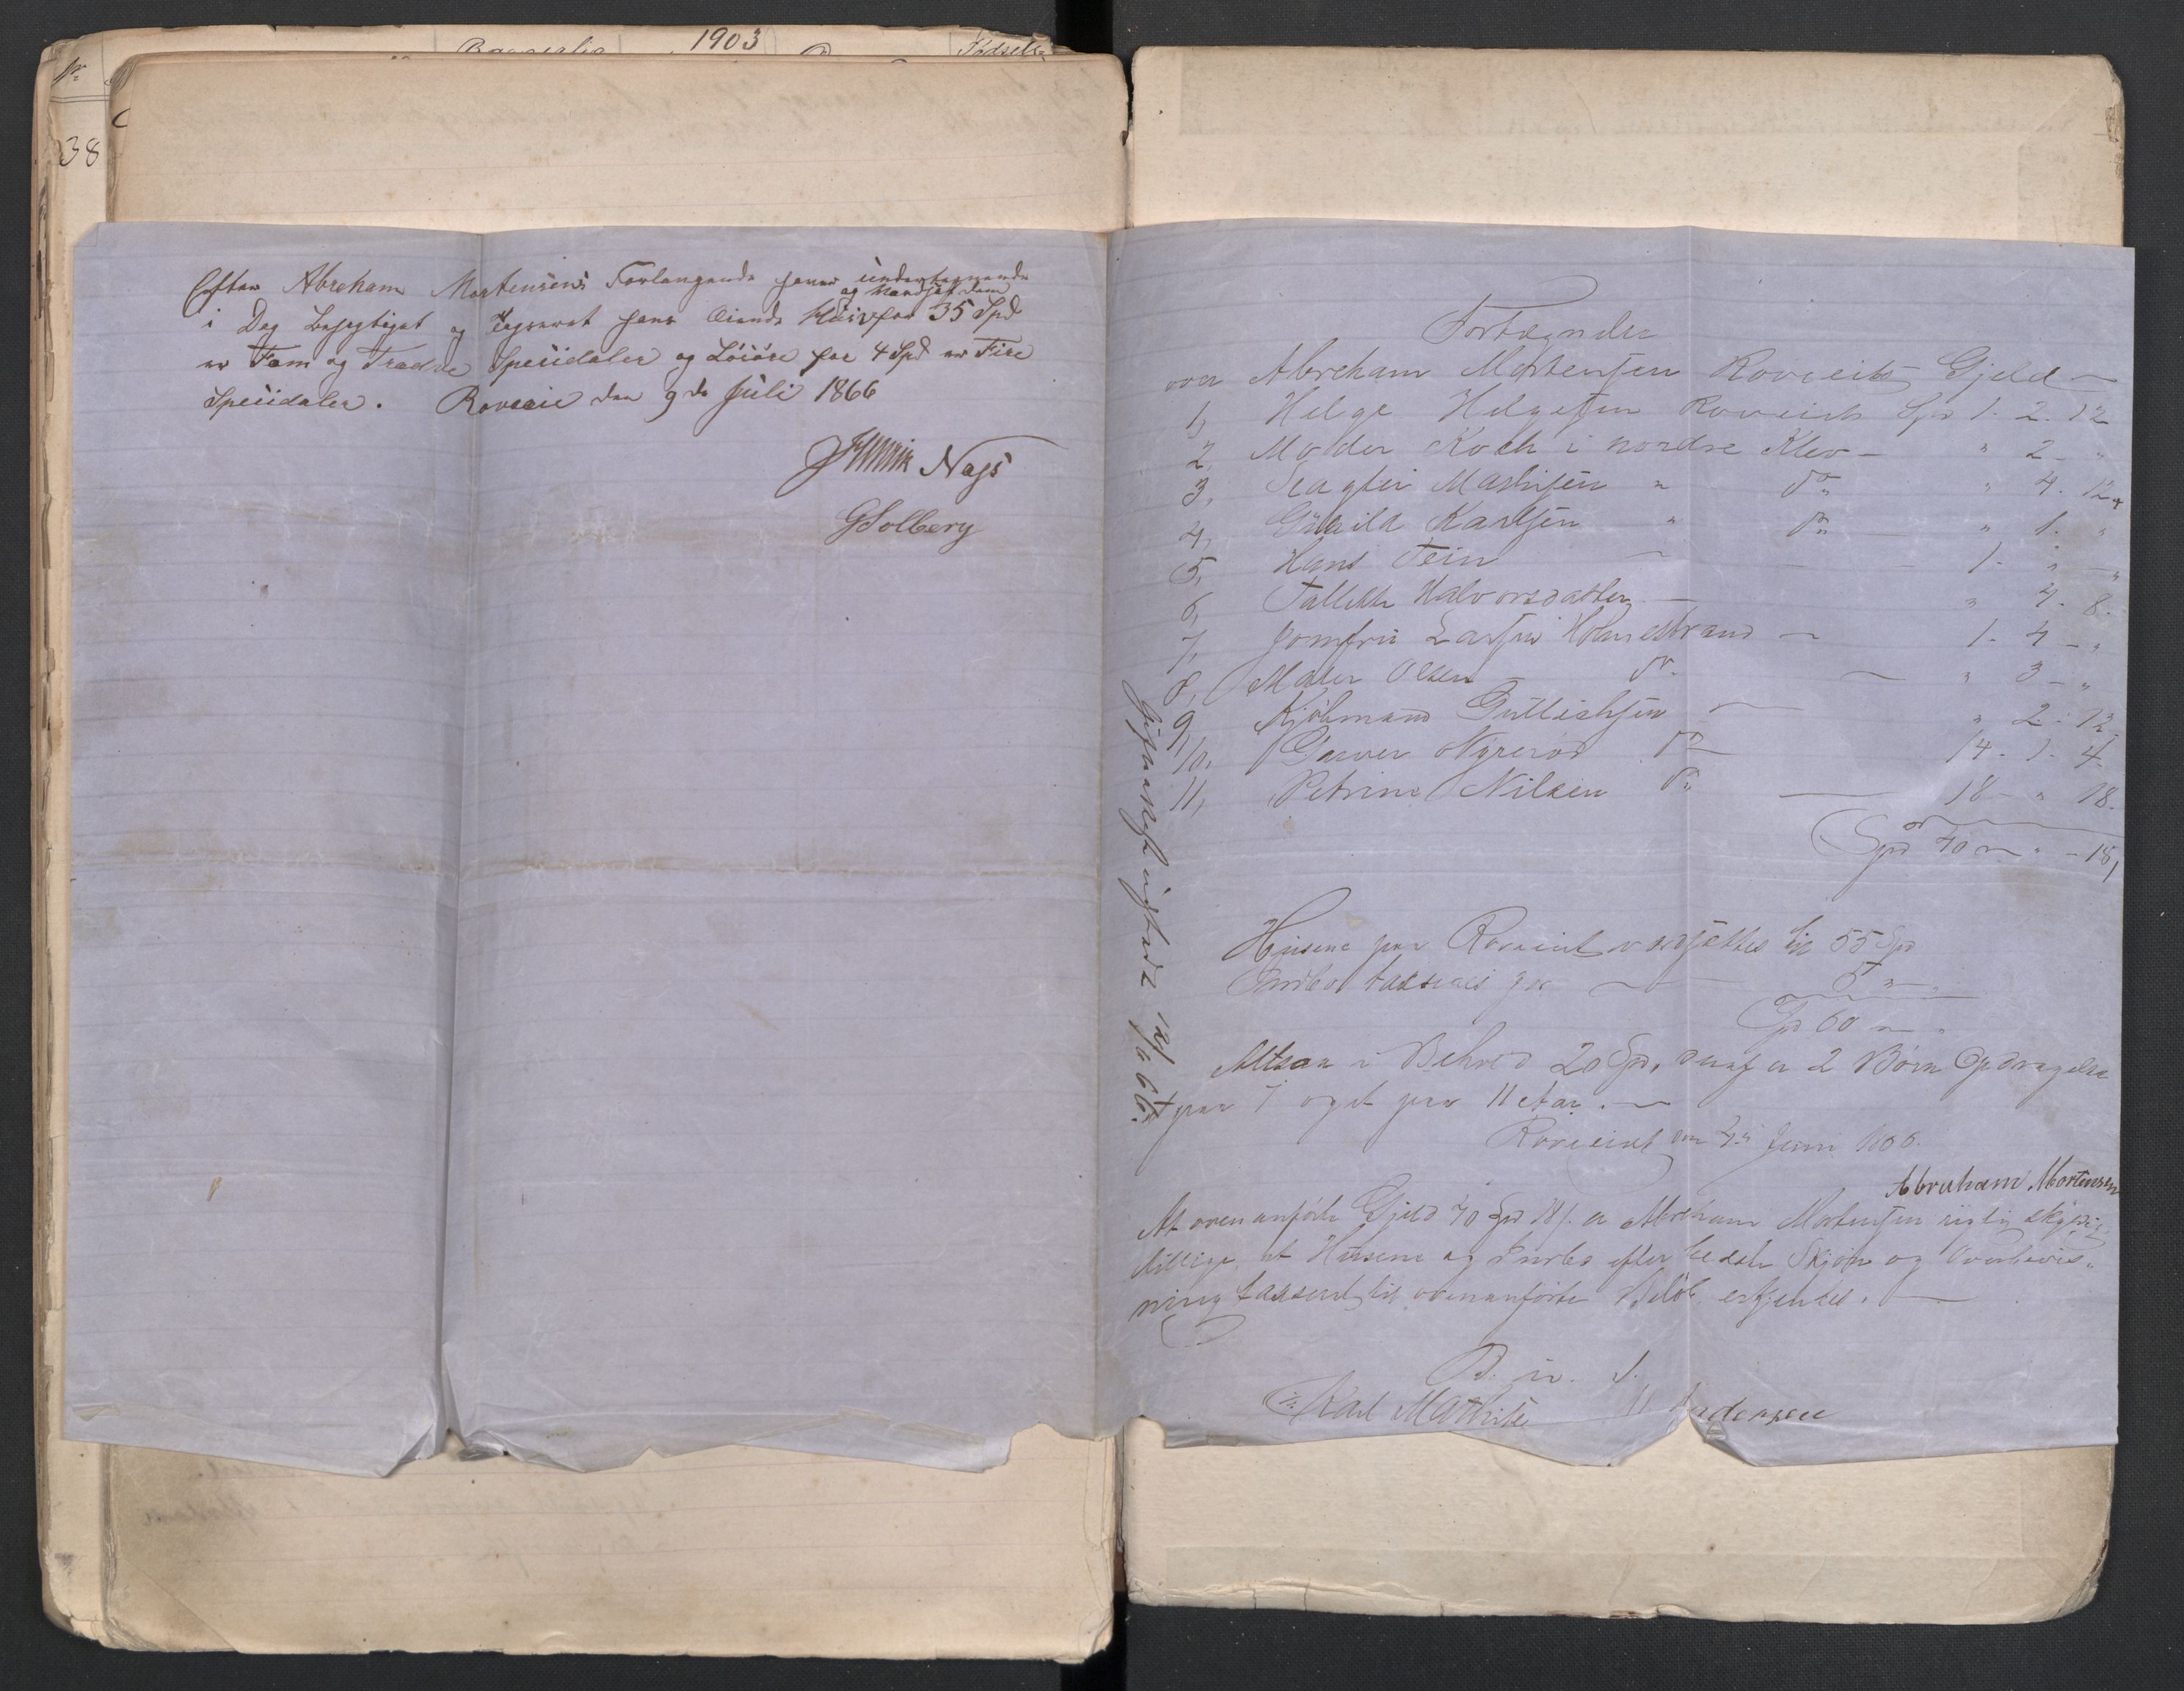 1903
38
Efter Abreham Mortensens Forlangende haver undertegnende
i Dag besigtiget og taxeret hans Eiende Huse for 35 Spd
er Fem og Tredve Speciedaler og Løsøre for 4 Spd er Fire
Speciedaler. Roveie den 9de Juli 1866
Nags
G Solberg
Fortegnelse
over Abreham Mortensen Roveiets Gjeld
1, Helge Helgesen Roveiet Spd 1. 2. 12
2, Moder Koch i nordre Klev - " 2 - "
3, Mathisen " do " 4. 12
4, Karlsen " do " 1. "
5, Hans Tein 1. " - "
6, Halvorsdatter " 4. 8.
7, Jomfru Larsen Holmestrand 1 - 4 - "
8, Maler Olsen do " 3 - "
9, Kjøbmand Gullichsen " 2 - 12
10, Garver Nyrerød do 14 - 1 - 4
11, Petrine Nilsen do 18 - " 18.
Spd 40 " - 18,
Husene paa Roveiet værdsættes til 55 Spd
Indbo taxeres for 5 " "
Spd 60 "
Altsaa i Behold 20 Spd, 2 Børn Opdragelse
et paa 7 og et paa 11 Aar.
Roveiet den Juni 1866.
Abraham Mortensen
At ovenanførte Gjeld 40 Spd 18 s. er Abreham Mortensen rigtig skyldig
tillige at Husene og Indbo efter bedste Skjøn og Overbevis-
ning taxeret til ovenanførte Beløb erkjendes.
Karl Mathis Andersen
12/7 66.